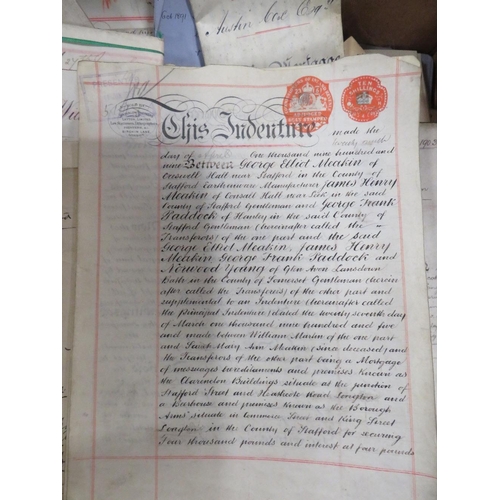 Austin Cox Esq
Mortgage
TEN
SHILLINGS
This Indenture made the
day of One thousand nine hundred and
nine Between George Elliot Meakin of
Creswell Hall near Stafford in the County of
Stafford Earthenware Manufacturer James Henry
Meakin of Consall Hall near Leek in the said
County of Stafford Gentleman and George Frank
Paddock of Hanley in the said County of
Stafford Gentleman (hereinafter called the
Transferors) of the one part and the said
George Elliot Meakin, James Henry
Meakin George Frank Paddock and
Norwood Young of Glen Avon Lansdown
Bath in the County of Somerset Gentleman (herein
after called the Transferees) of the other part and
supplemental to an Indenture (hereinafter called
the principal Indenture) dated the twenty seventh day
of March one thousand nine hundred and five
and made between William of the one part
and Mary Ann Meakin (since deceased) and
the Transferors of the other part being a Mortgage
of messuages hereditaments and premises known as
the Clarendon Buildings situate at the junction of
Stafford Street and Heathcote Road Longton and
a Beerhouse and premises known as the Borough
Arms situate in Commerce Street and King Street
Longton in the County of Stafford for securing
Four thousand pounds and interest at four pounds